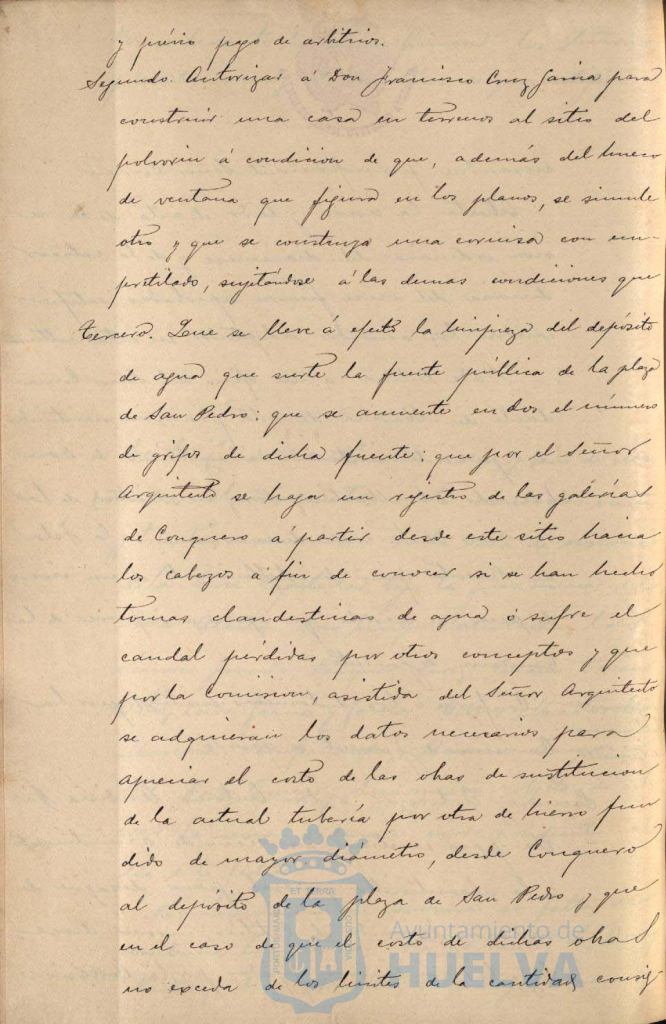 y prévio pago de arbitrios.
Segundo. Autorizar á Don Francisco Cruz Garcia para
construir una casa en terrenos al sitio del
polvorin á condicion de que, además del hueco
de ventana que figura en los planos, se simule
otro y que se construya una cornisa con em-
pretilado, sujetándose á las demas condiciones que
Tercero. Que se lleve á efecto la limpieza del depósito
de agua que surte la fuente pública de la plaza
de San Pedro: que se aumente en dos el número
de grifos de dicha fuente: que por el Señor
Arquitecto se haga un registro de las galerías
de Conquero á partir desde este sitio hacia
los cabezos á fin de conocer si se han hecho
tomas clandestinas de agua ó sufre el
caudal pérdidas por otros conceptos y que
por la Comision, asistida del Señor Arquitecto
se adquieran los datos necesarios para
apreciar el costo de las obras de sustitucion
de la actual tubería por otra de hierro fun
dido de mayor diámetro, desde Conquero
al depósito de la plaza de San Pedro y que
en el caso de que el costo de dichas obras
no exceda de los limites de la cantidad consig
Ayuntamiento de
HUELVA